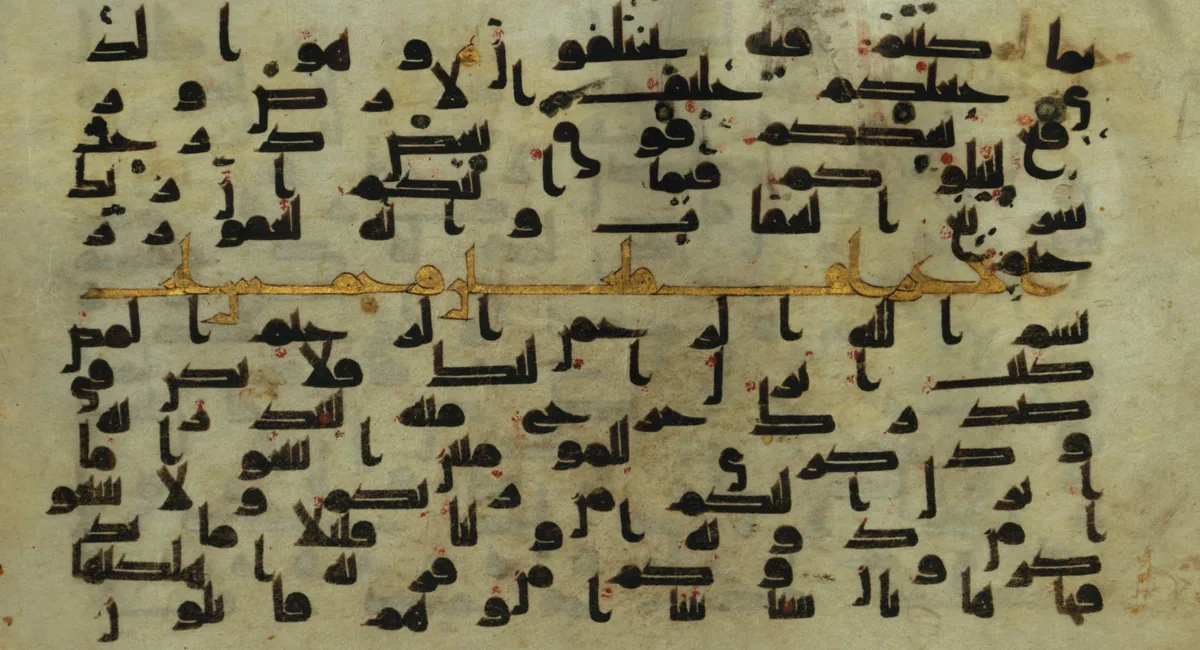 بما كنتم فيه تختلفون وهو الذ
ي جعلكم خليف الارض ور
فع بعضكم فوق بعض درجت
ليبلوكم فيما اتيكم ان ربك
سريع العقاب وانه لغفور ر
حيم
بسم الله الرحمن الرحيم المص
كتب انزل اليك فلا يكن في
صدرك حرج منه لتنذر به
وذكرى للمومنين اتبعوا ما
انزل اليكم من ربكم ولا تتبعو
ا من دونه اوليا قليلا ما تذ
كرون وكم من قرية اهلكنها
فجاها باسنا بيتا او هم قايلون